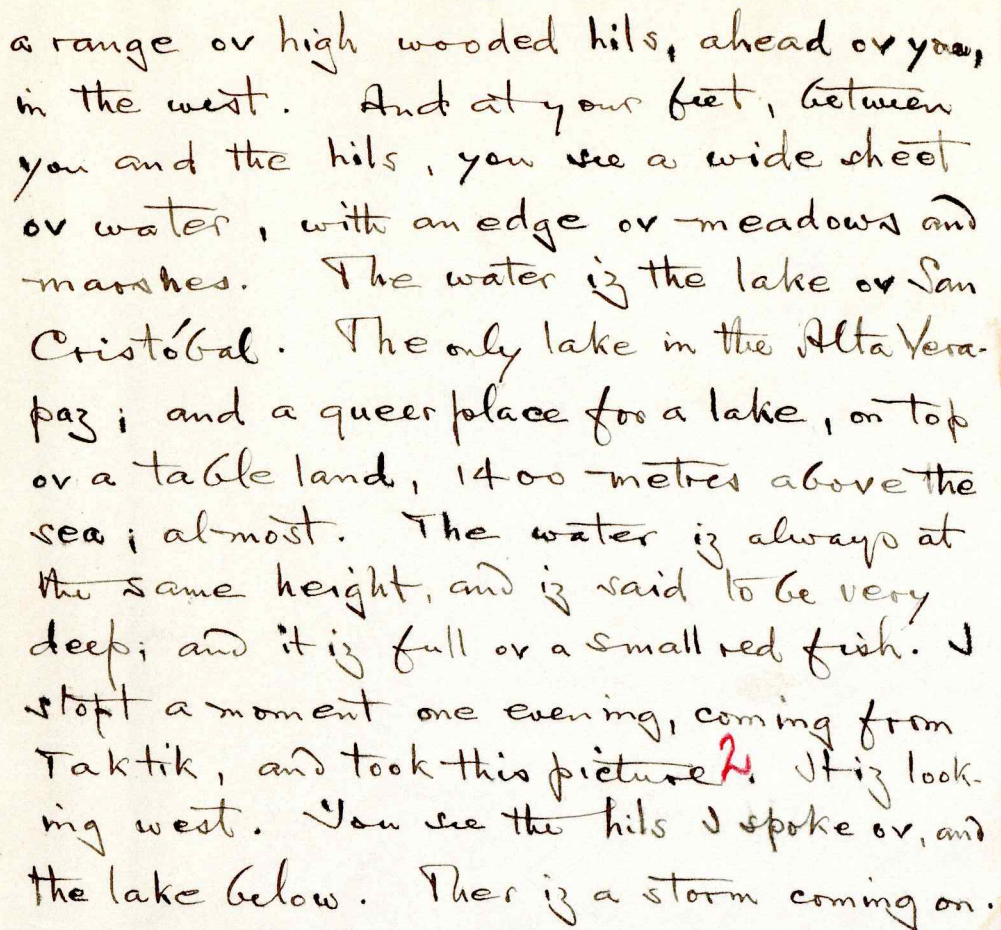 a range ov high wooded hils, ahead ov you,
in the west. And at your feet, between
you and the hils, you see a wide sheet
ov water, with an edge ov meadows and
marshes. The water iz the lake ov San
Cristóbal. The only lake in the Alta Vera-
paz; and a queer place for a lake, on top
ov a table land, 1400 metres above the
sea; almost. The water iz always at
the same height, and iz said to be very
deep; and it iz full ov a small red fish. I
stopt a moment one evening, coming from
Taktik, and took this picture 2. It iz look-
ing west. You see the hils I spoke ov, and
the lake below. Ther iz a storm coming on.